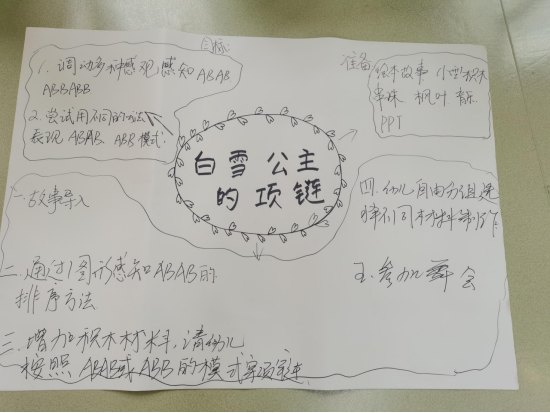 目标
1. 调动多种感观感知ABAB
ABBABB
2. 尝试用不同的方法
表现 ABAB、ABB模式.
准备
绘本故事 小型积木
串珠 枫叶 音乐
PPT
白雪公主
的项链
一、故事导入
二、通过图形感知ABAB的
排序方法
三、增加积木材料,请幼儿
按照ABAB或ABB的模式穿项链
四、幼儿自由分组选
择不同材料制作
五、参加舞会